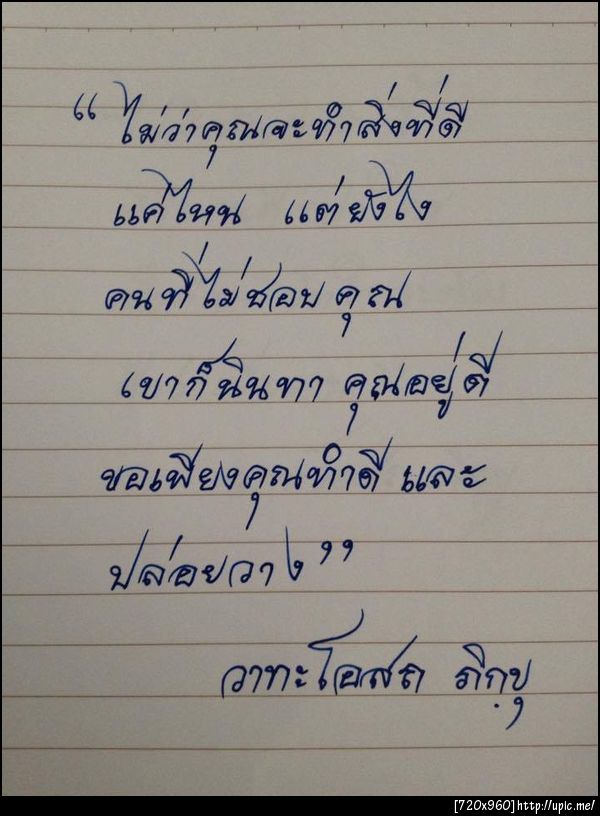 “ ไม่ว่าคุณจะทำสิ่งที่ดี
แค่ไหน แต่ยังไง
คนที่ไม่ชอบคุณ
เขาก็นินทา คุณอยู่ดี
ขอเพียงคุณทำดี และ
ปล่อยวาง”
วาทะโอสถ ภิกฺขุ
[720x960]http://upic.me/